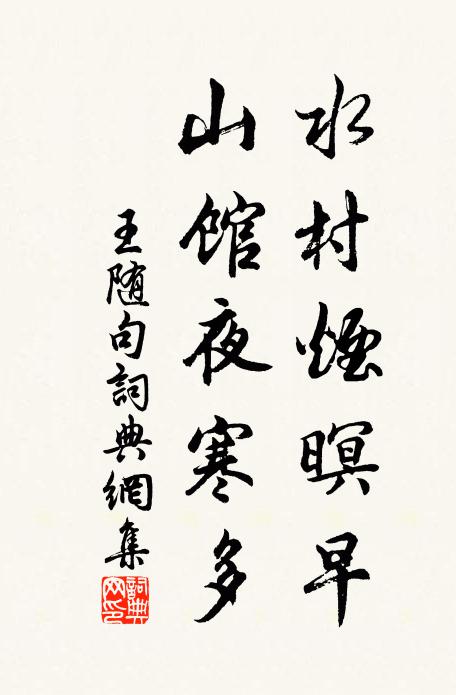 水村煙暝早
山館夜寒多
王随句詞典網集
詞典网印